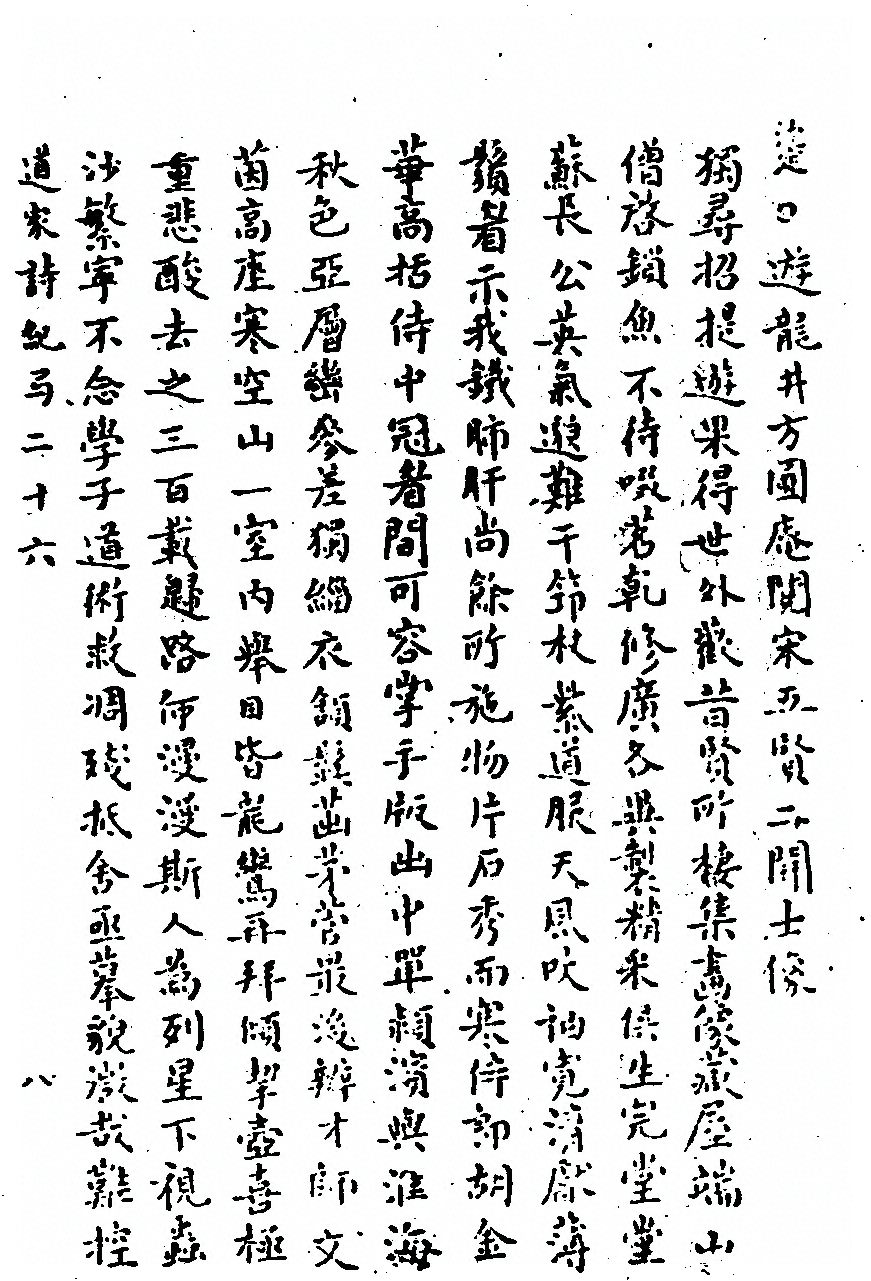 遊龍井方圓庵閱宋五賢二開士像
獨尋招提遊果得世外歡昔賢所棲集畵像藏屋端山
僧啓鎖魚不待啜茗乾修廣各異製精采俱生完堂堂
蘇長公英氣邈難干筇杖紫道服天風吹袖寬清獻薄
鬚者示我鐵肺肝尚餘所施物片石秀而寒侍郎胡金
華高括侍中冠者間可容掌手版出中單潁濱與淮海
秋色亞層巒參差獨緇衣頷髭茁茅菅最後辯才師文
茵高座寒空山一室內舉目皆龍鸞再拜傾挈壺喜極
重悲酸去之三百載歸路何漫漫斯人為列星下視蟲
沙繁寧不念學子道術救凋殘抵舍亟摹貌澂哉難控
道家詩紀弓二十六 八